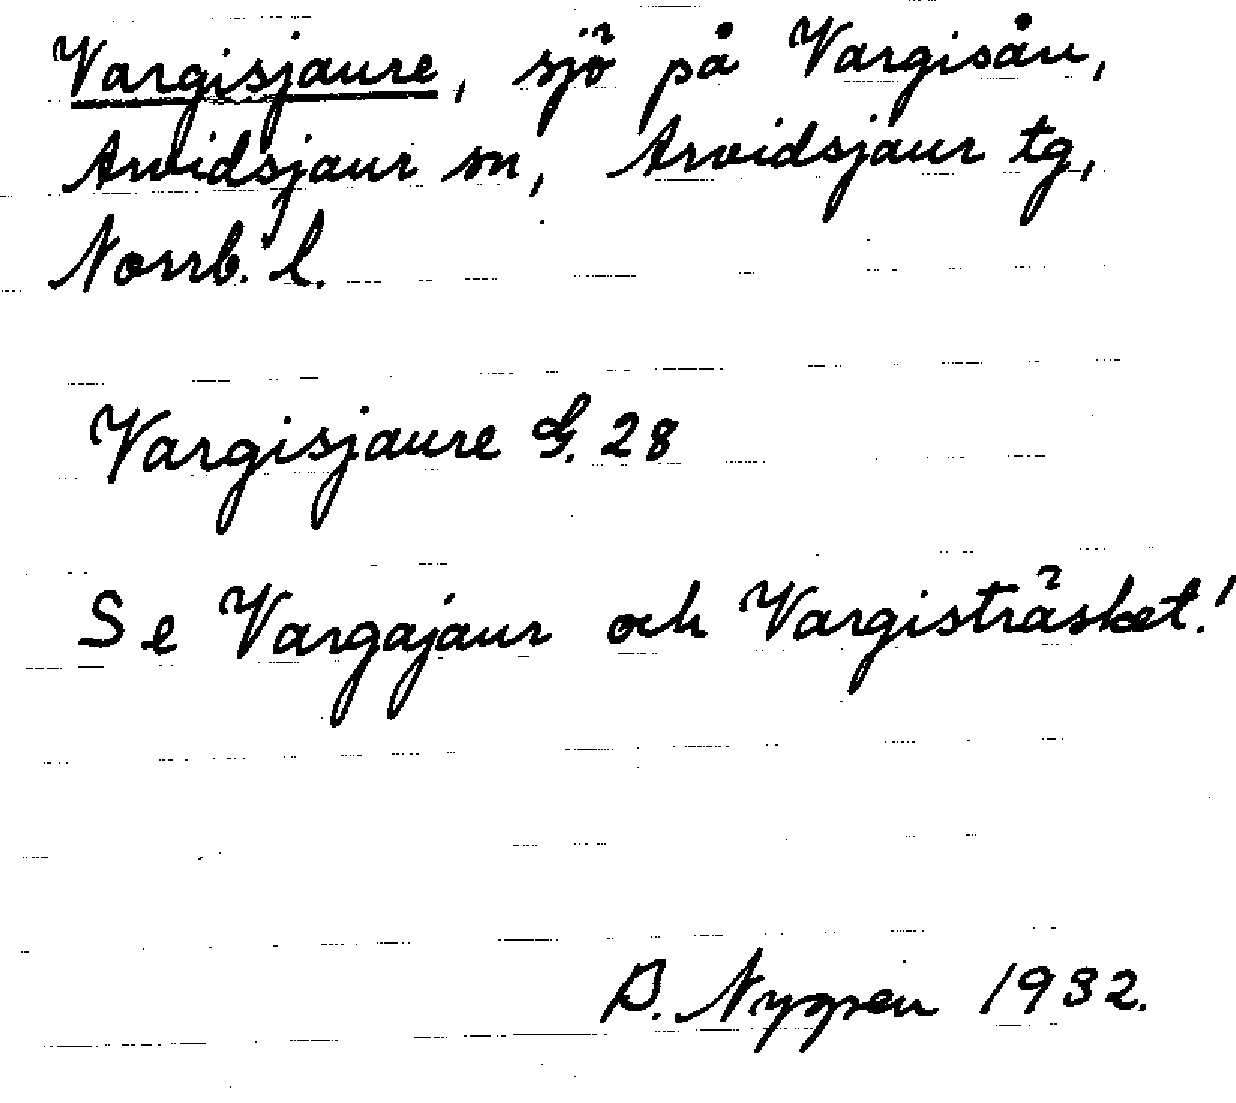 Vargisjaure, sjö på Vargisån,
Arvidsjaur sn, Arvidsjaur tg,
Norrb. l.
Vargisjaure G. 28
Se Vargajaur och Vargisträsket!
B. Nygren 1932.